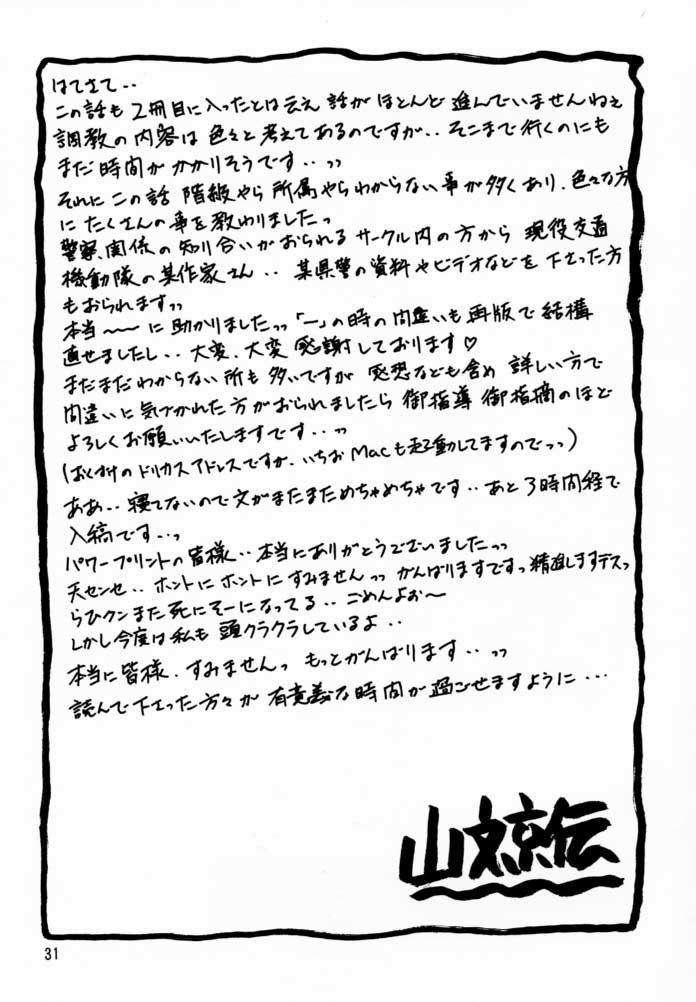 はてさて‥
この話も 2冊目に入ったとは云え 話が ほとんど 進んでいませんねェ
調教の内容は 色々と考えてあるのですが‥そこまで行くのにも
まだ時間が かかりそうです‥っっ
それに この話 階級やら 所属やらわからない事が多くあり、色々な方
に たくさんの事を教わりましたっ
警察関係の知り合いがおられる サークル内の方から 現役交通
機動隊の某作家さん‥ 某県警の資料やビデオなどを 下さった方
もおられますっっ
本当〜〜〜に 助かりましたっっ「一」の時の間違いも再版で 結構
直せましたし‥大変、大変 感謝しております♡
まだまだわからない所も 多いですが 感想なども含め 詳しい方で
間違いに気づかれた方がおられましたら 御指導 御指摘のほど
よろしくお願いいたしますです‥っっ
(おくづけのドリカスアドレスですが、いちおMacも起動してますのでっっ)
ああ‥ 寝てないので文がまたまためちゃめちゃです‥あと3時間程で
入稿です‥っ
パワープリントの皆様‥本当にありがとうございましたっっ
天センセ‥ ホントに ホントに すみませんっっ がんばりますですっ精進しますデスっ
らひクンまた死にそーになってる‥ごめんよぉ〜
しかし今度は私も 頭クラクラしているよ‥
本当に皆様、すみませんっ もっとがんばります‥っっ
読んで下さった方々が 有意義な時間が 過ごせますように…
山文京伝
31